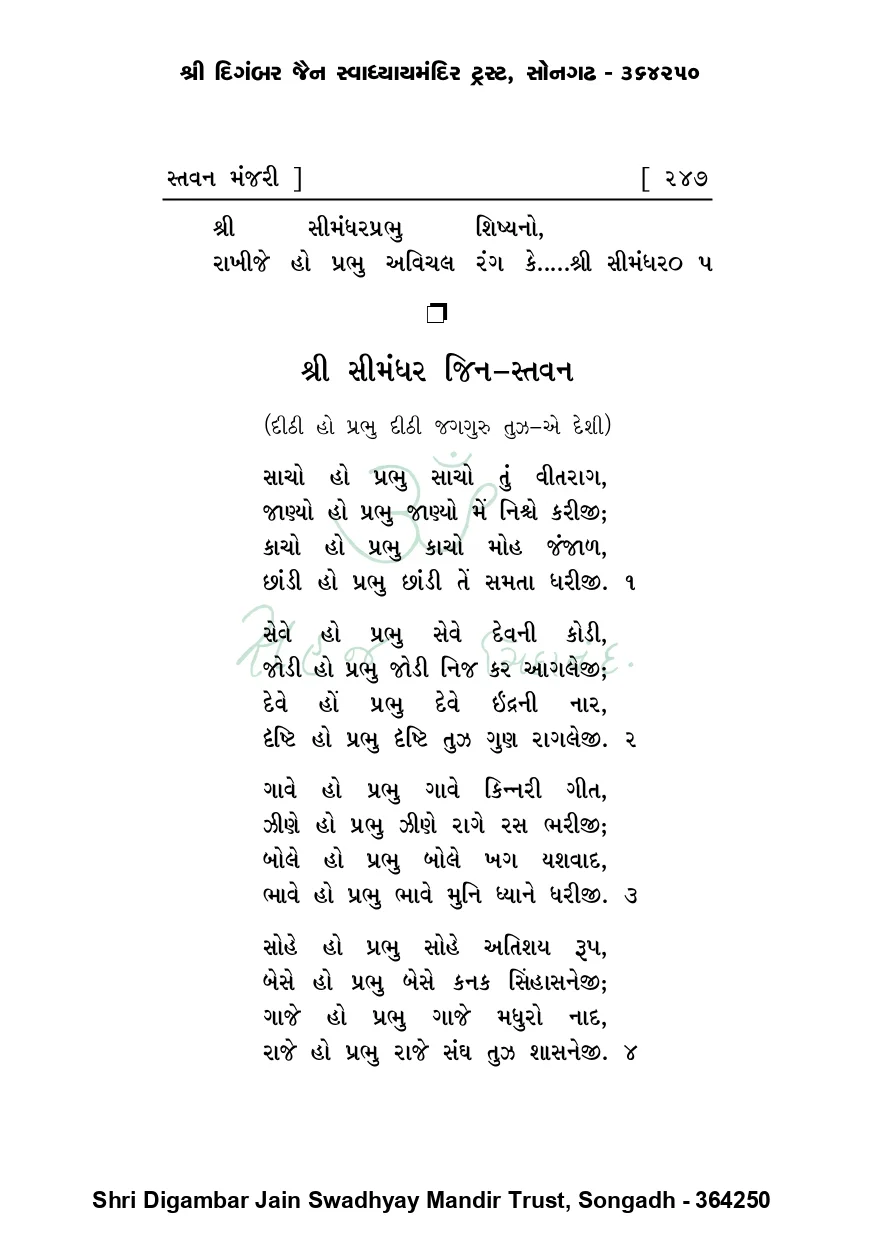 શ્રી દિગંબર જૈન સ્વાધ્યાયમંદિર ટ્રસ્ટ, સોનગઢ - ૩૬૪૨૫૦
સ્તવન મંજરી ] [ ૨૪૭
શ્રી સીમંધરપ્રભુ શિષ્યનો,
રાખીજે હો પ્રભુ અવિચલ રંગ કે.....શ્રી સીમંધર૦ ૫
શ્રી સીમંધર જિન–સ્તવન
(દીઠી હો પ્રભુ દીઠી જગગુરુ તુઝ–એ દેશી)
સાચો હો પ્રભુ સાચો તું વીતરાગ,
જાણ્યો હો પ્રભુ જાણ્યો મેં નિશ્ચે કરીજી;
કાચો હો પ્રભુ કાચો મોહ જંજાળ,
છાંડી હો પ્રભુ છાંડી તેં સમતા ધરીજી. ૧
સેવે હો પ્રભુ સેવે દેવની કોડી,
જોડી હો પ્રભુ જોડી નિજ કર આગલેજી;
દેવે હોં પ્રભુ દેવે ઈંદ્રની નાર,
દૃષ્ટિ હો પ્રભુ દૃષ્ટિ તુઝ ગુણ રાગલેજી. ૨
ગાવે હો પ્રભુ ગાવે કિન્નરી ગીત,
ઝીણે હો પ્રભુ ઝીણે રાગે રસ ભરીજી;
બોલે હો પ્રભુ બોલે ખગ યશવાદ,
ભાવે હો પ્રભુ ભાવે મુનિ ધ્યાને ધરીજી. ૩
સોહે હો પ્રભુ સોહે અતિશય રૂપ,
બેસે હો પ્રભુ બેસે કનક સિંહાસનેજી;
ગાજે હો પ્રભુ ગાજે મધુરો નાદ,
રાજે હો પ્રભુ રાજે સંઘ તુઝ શાસનેજી. ૪
ૐ
સહજ ચિદાનંદ.
Shri Digambar Jain Swadhyay Mandir Trust, Songadh - 364250